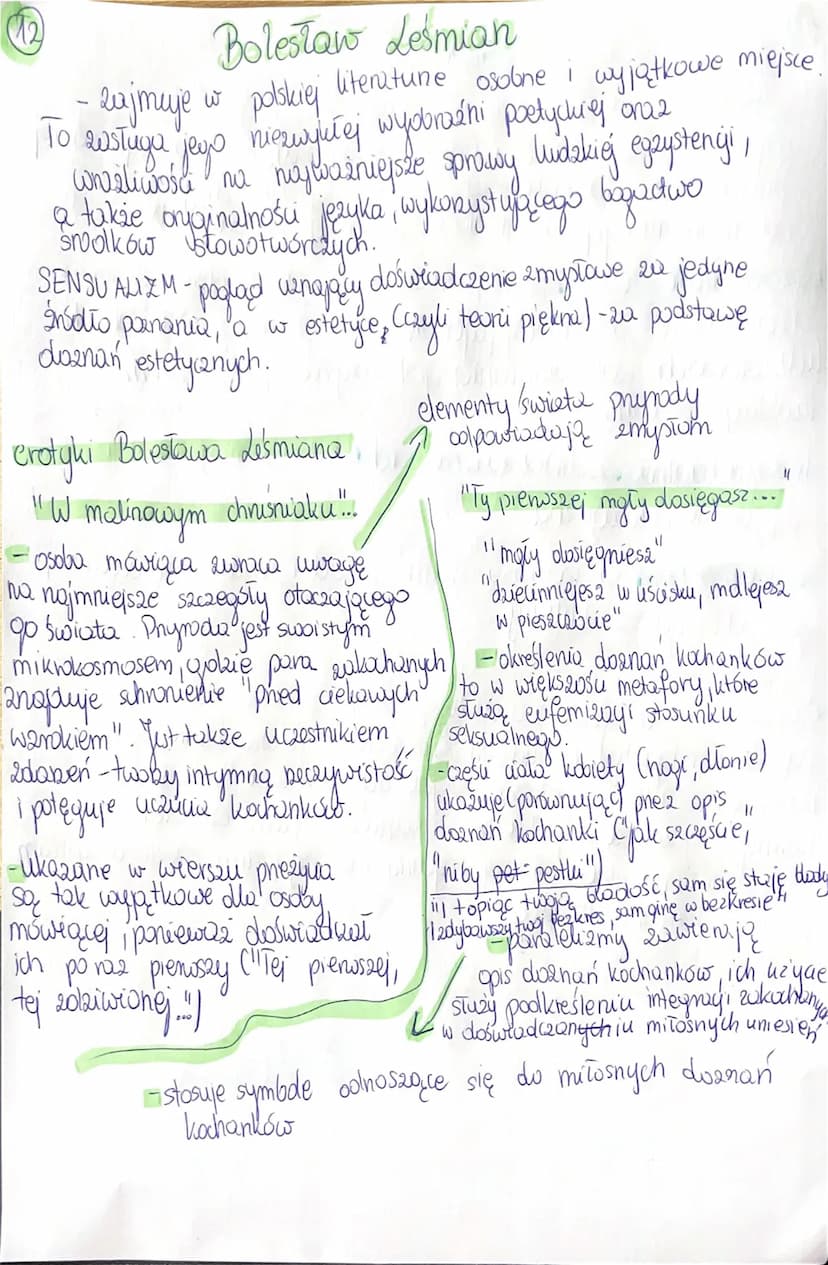 12
Bolesław Leśmian
- zajmuje w polskiej literaturze osobne i wyjątkowe miejsce.
To zasługa jego niezwykłej wyobraźni poetyckiej oraz
wrażliwości na najważniejsze sprawy ludzkiej egzystencji,
a także oryginalności języka, wykorzystującego bogactwo
środków słowotwórczych.
SENSUALIZM - pogląd uznający doświadczenie zmysłowe za jedyne
źródło poznania, a w estetyce, (czyli teorii piękna) - za podstawę
doznań estetycznych.
elementy świata przyrody
odpowiadają zmysłom
erotyki Bolesława Leśmiana
"W malinowym chruśniaku"...
- osoba mówiąca zwraca uwagę
na najmniejsze szczegóły otaczającego
go świata. Przyroda jest swoistym
mikrokosmosem, gdzie para zakochanych
znajduje schronienie "przed ciekawych
wzrokiem". Jest także uczestnikiem
zdarzeń - tworzy intymną rzeczywistość
i potęguje uczucia kochanków.
- Ukazane w wierszu przeżycia
są tak wyjątkowe dla osoby
mówiącej, ponieważ doświadczał
ich po raz pierwszy ("Tej pierwszej,
tej zdziwionej...")
"Ty pierwszej mgły dosięgasz..."
"mgły dosięgniesz"
"dziecinniejesz w uścisku, mdlejesz
w pieszczocie"
- określenia doznań kochanków
to w większości metafory, które
służą eufemizacji stosunku
seksualnego.
- części ciała kobiety (nogi, dłonie)
ukazuje (porównując) przez opis
doznań kochanki ("jak szczęście,"
"niby pet- pestki")
"I topiąc twoją bladość, sam się staję blady
I zdybawszy twój bezkres, sam ginę w bezkresie"
- paralelizmy zawierają
opis doznań kochanków, ich użycie
służy podkreśleniu integracji zakochanych
w doświadczanych iu miłosnych uniesień
- stosuje symbole odnoszące się do miłosnych doznań
kochanków